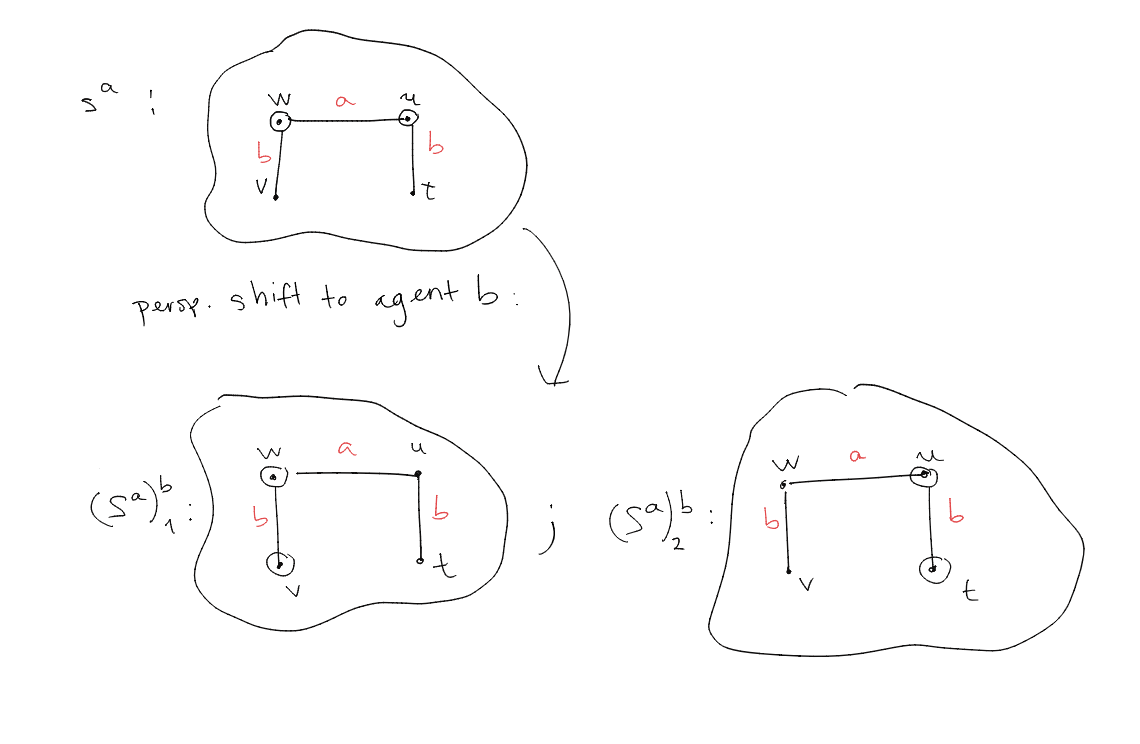 s^a :
w a u
b b
v t
persp. shift to agent b :
(s^a)^b_1 :
w a u
b b
v t
;
(s^a)^b_2 :
w a u
b b
v t